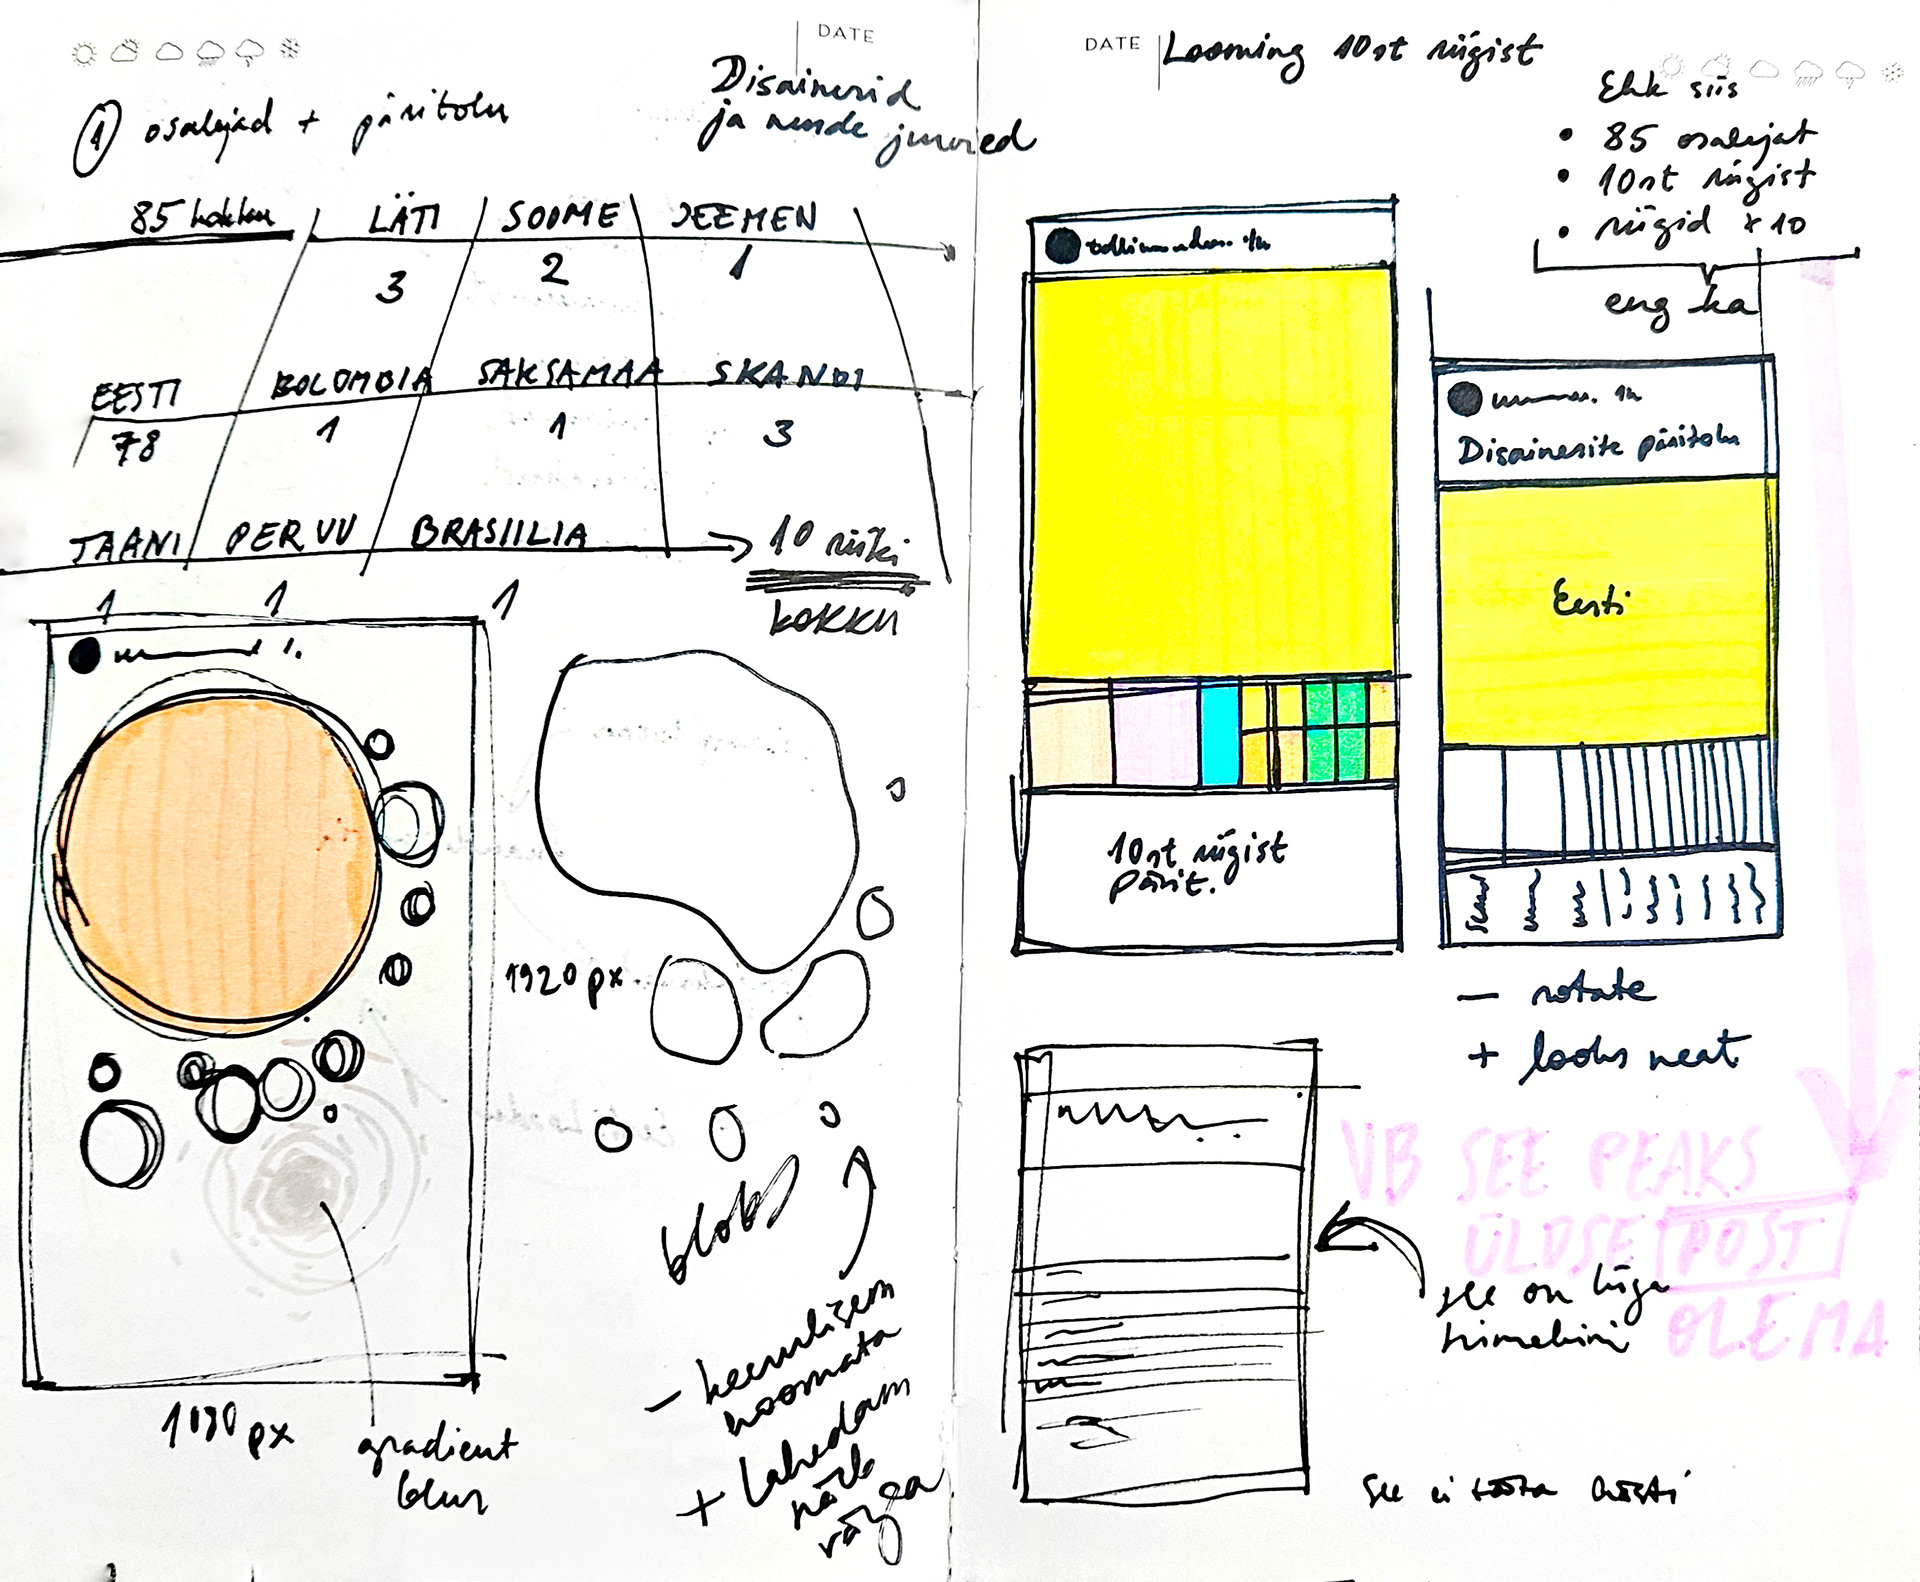 DATE
① osalejad + päritolu
Disainerid
ja nende juured
85 kokku
LÄTI
SOOME
JEEMEN
3
2
1
EESTI
KOLOMBIA
SAKSAMAA
SKANDI
78
1
1
3
TAANI
PERUU
BRASIILIA
10 riiki
kokku
1
1
1
1920 px
1080 px
gradient
blur
blobs
- keerulisem
hoomata
+ lahedam
näeb
välja
DATE
Looming 10st riigist
Ehk siis
• 85 osalejat
• 10st riigist
• riigid × 10
eng ka
10st riigist
pärit.
Disainerite päritolu
Eesti
- rotate
+ looks neat
VB SEE PEAKS
ÜLDSE POST
OLEMA
see on liiga
see ei tööta hästi